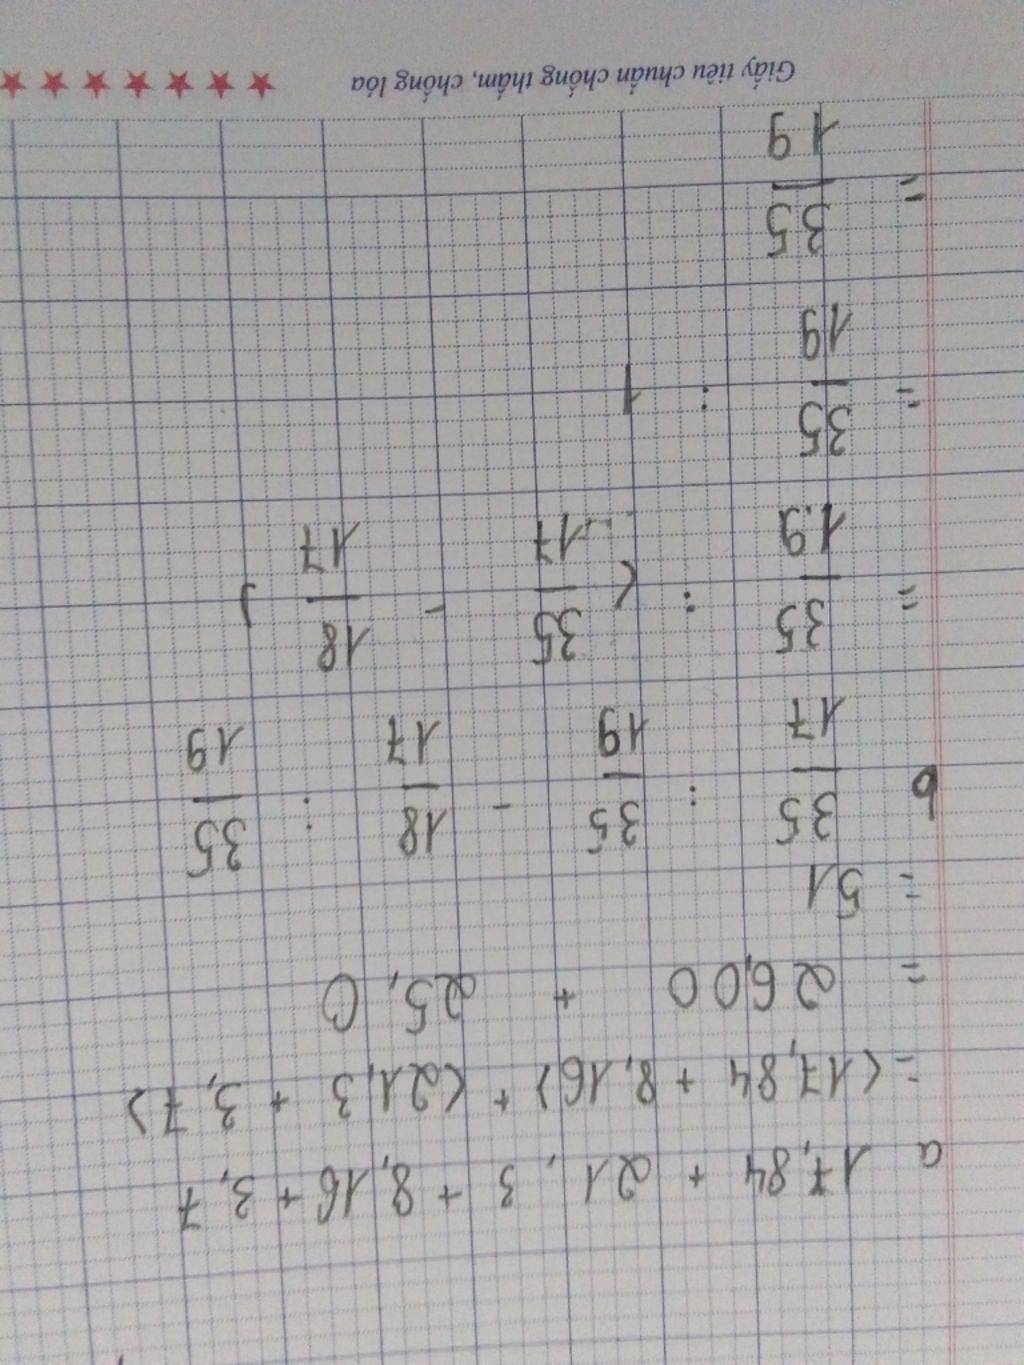 a 17,84 + 21,3 + 8,16 + 3,7
= (17,84 + 8,16) + (21,3 + 3,7)
= 26,00 + 25,0
= 51
b 35/17 : 35/19 - 18/17 : 35/19
= 35/19 : (35/17 - 18/17)
= 35/19 : 1
= 35/19
Giấy tiêu chuẩn chống thấm, chống lóa